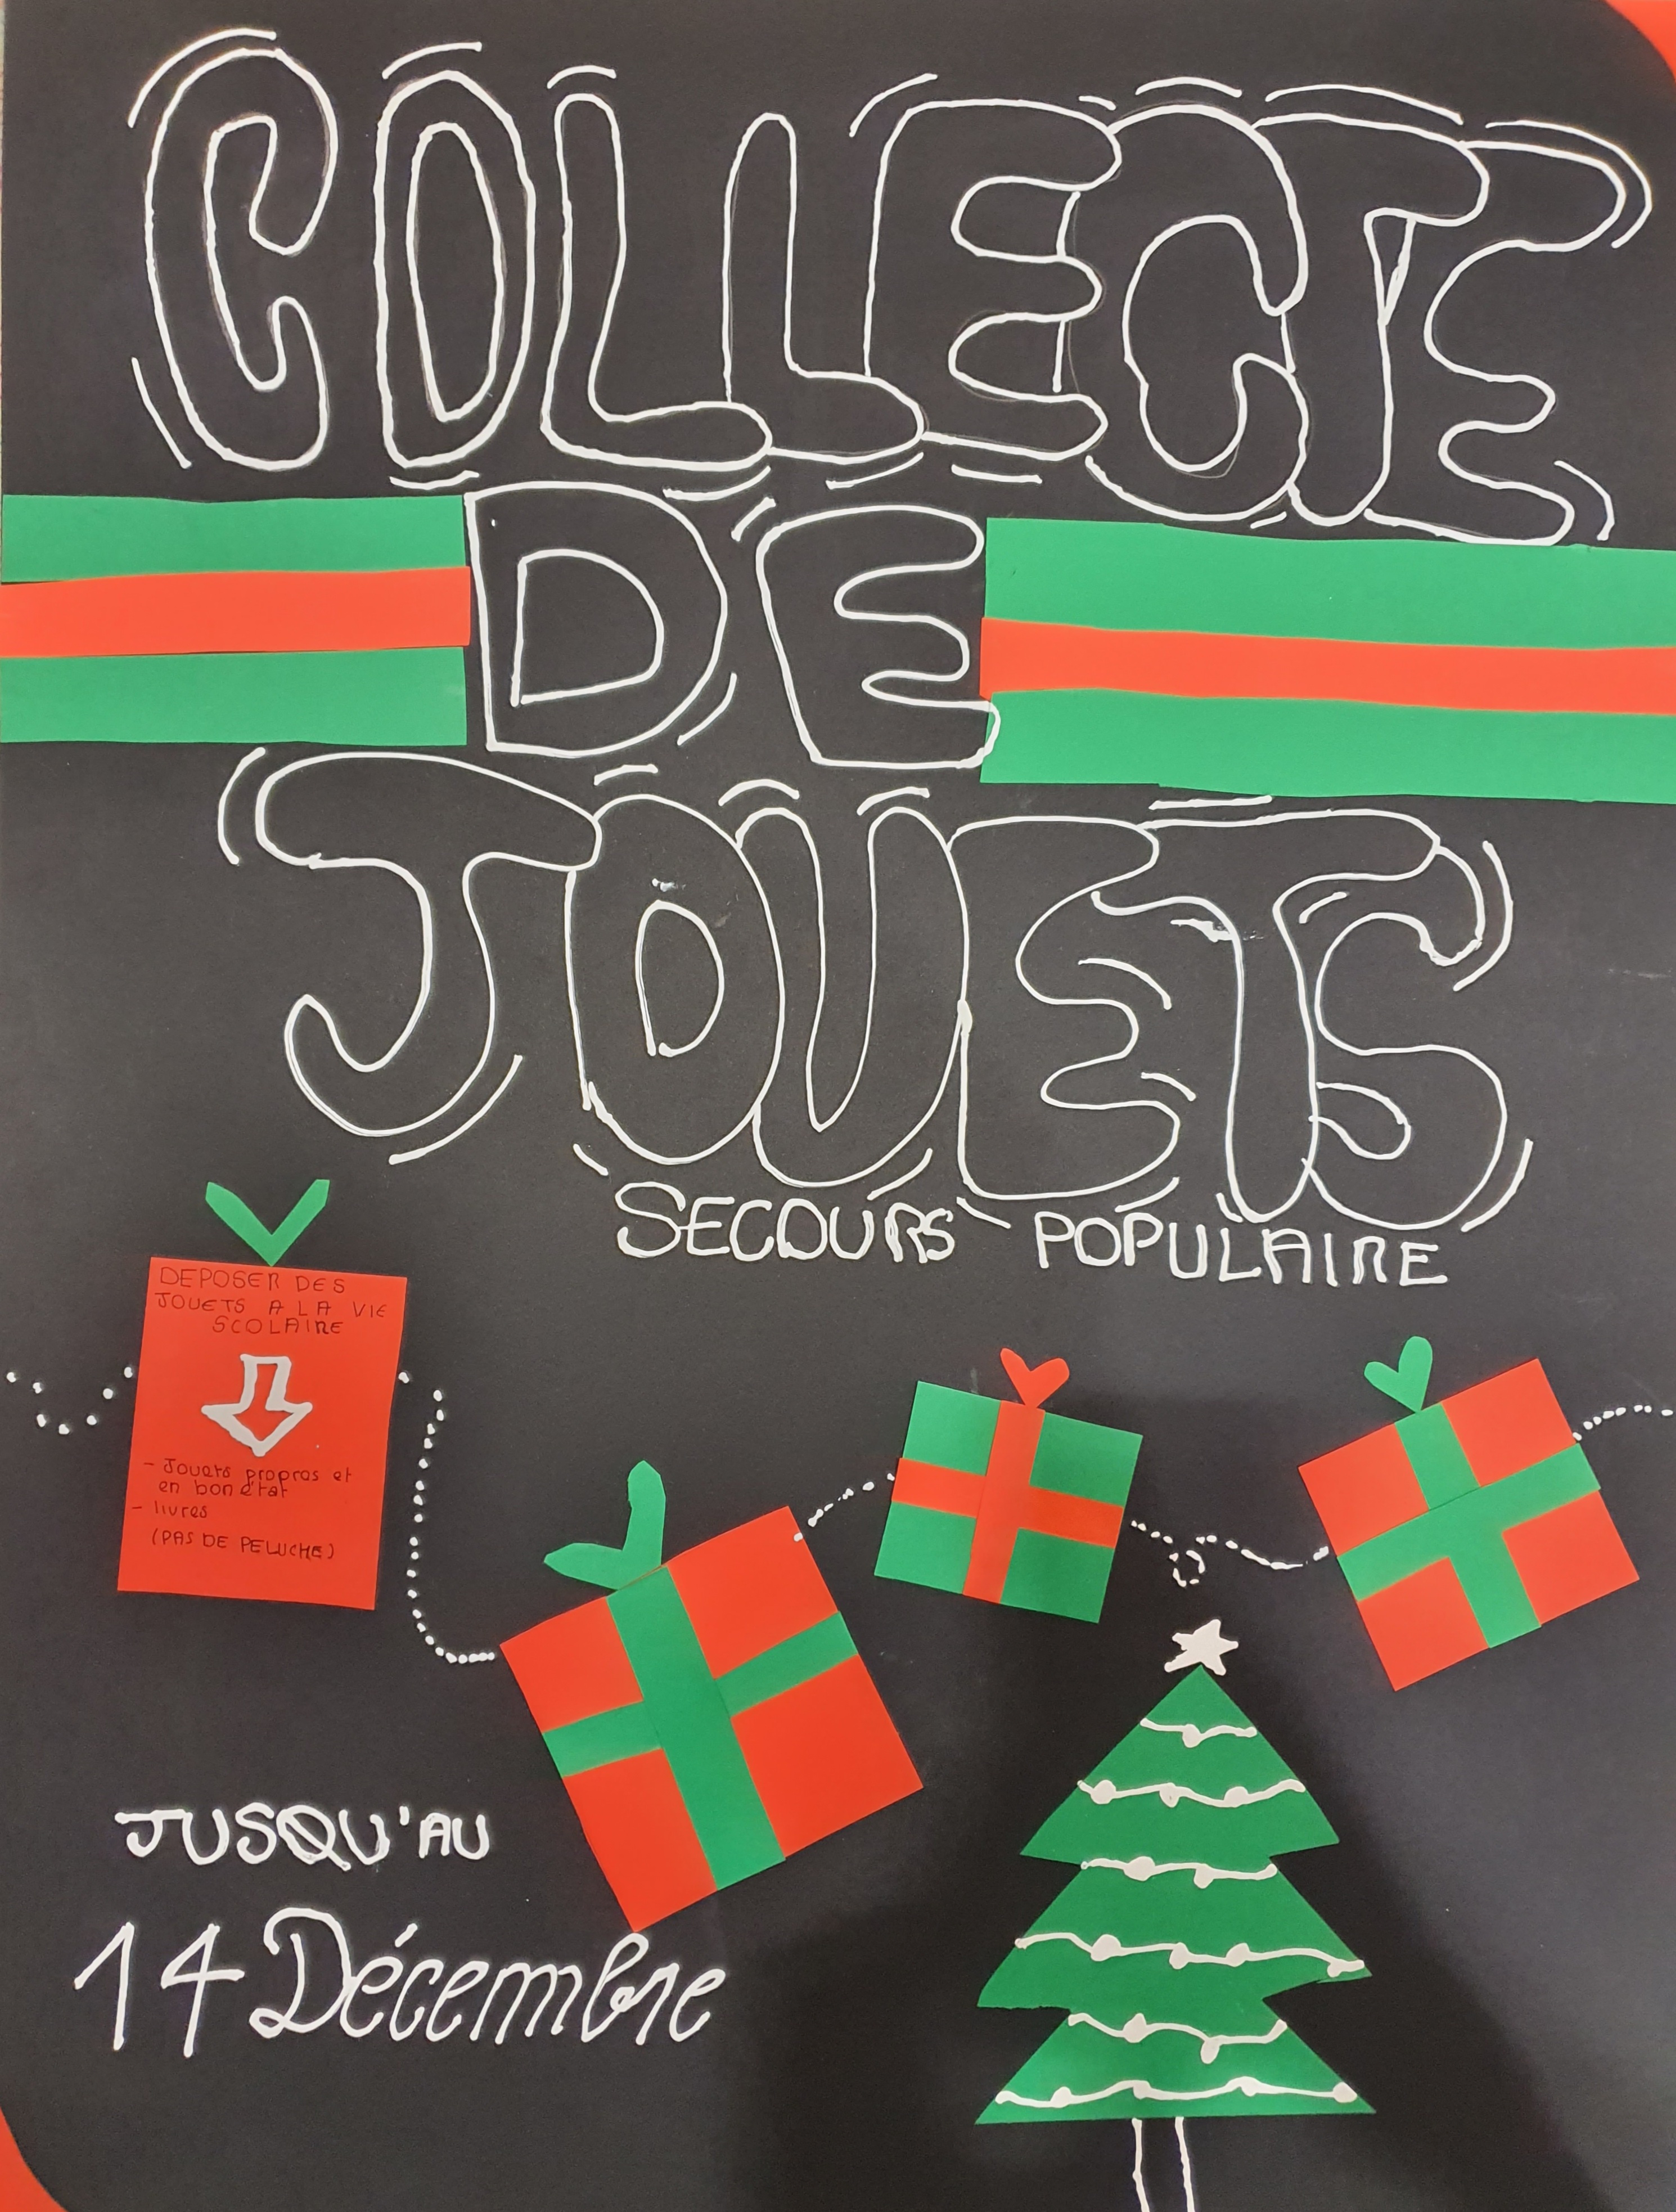 COLLECTE
DE
JOUETS
SECOURS POPULAIRE
DEPOSER DES
JOUETS A LA VIE
SCOLAIRE
- Jouets propres et
en bon état
- livres
(PAS DE PELUCHE)
JUSQU'AU
14 Décembre